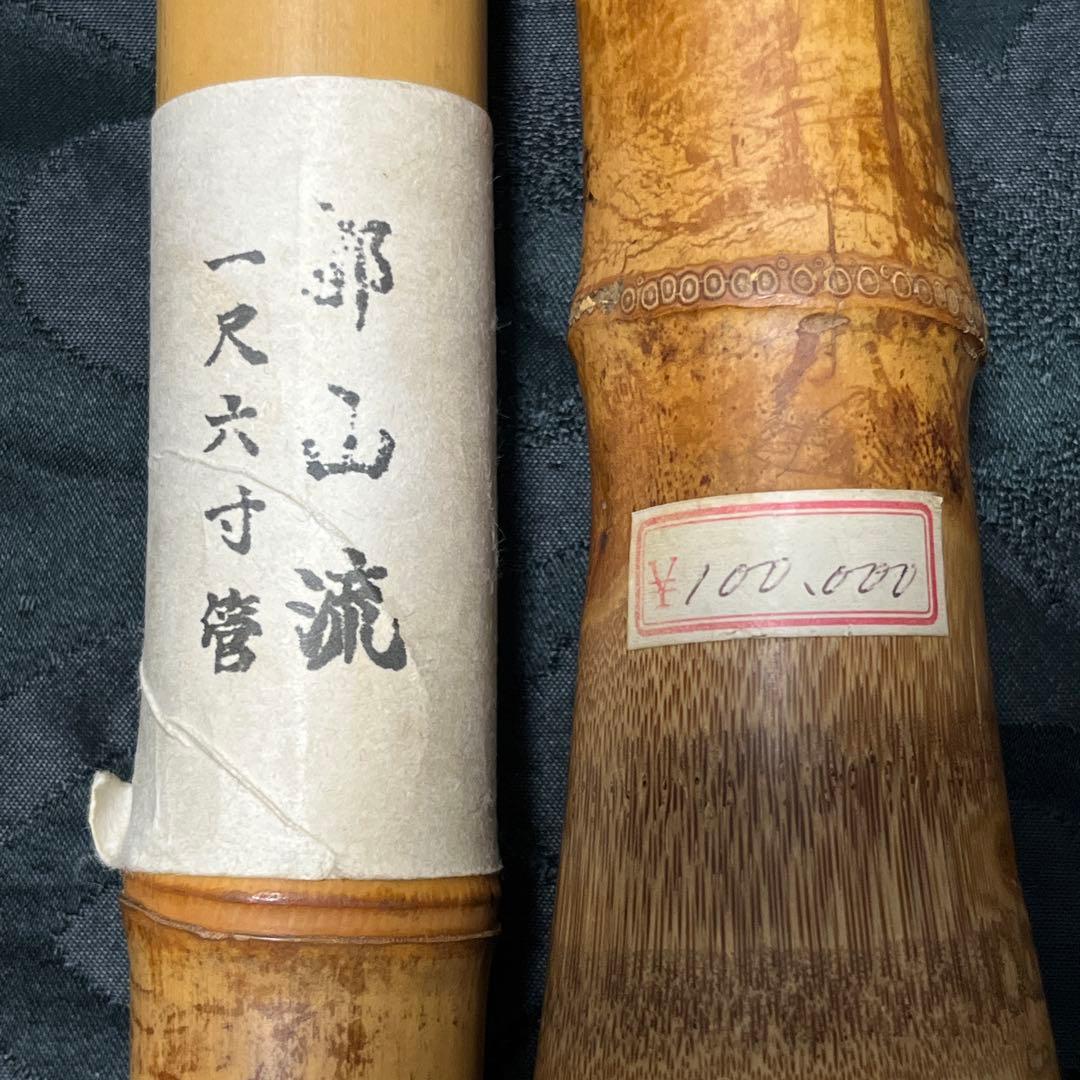 都山流
一尺六寸管
¥100,000